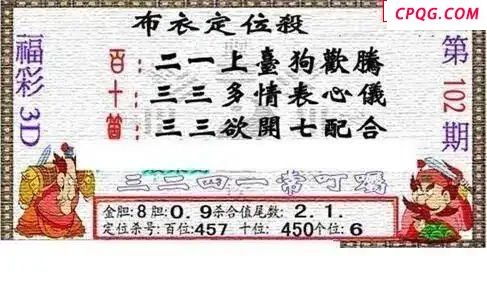 CPQG.COM
布衣定位殺
福彩3D
第102期
百:二一上臺狗歡騰
十:三三多情表心儀
箇:三三欲開七配合
三二四一常叮囑
金胆:8胆:0.9杀合值尾数:2.1.
定位杀号:百位:457 十位:450个位:6